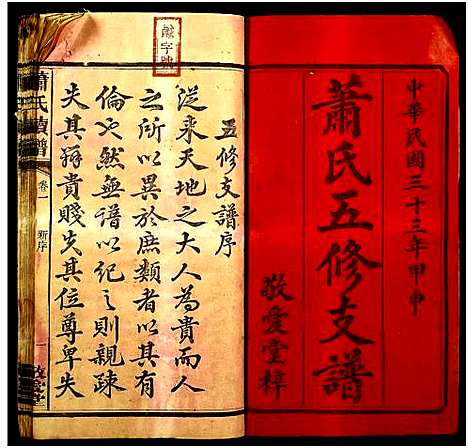 中華民國三十三年甲申
蕭氏五修支譜
敬愛堂梓
鹹字號
五修支譜序
從来天地之大人為貴而人
之所以異於庶類者以其有
倫也然無譜以紀之則親踈
失其辥貴賤失其位尊卑失
蕭氏續譜
卷一
新序
一
敬愛堂